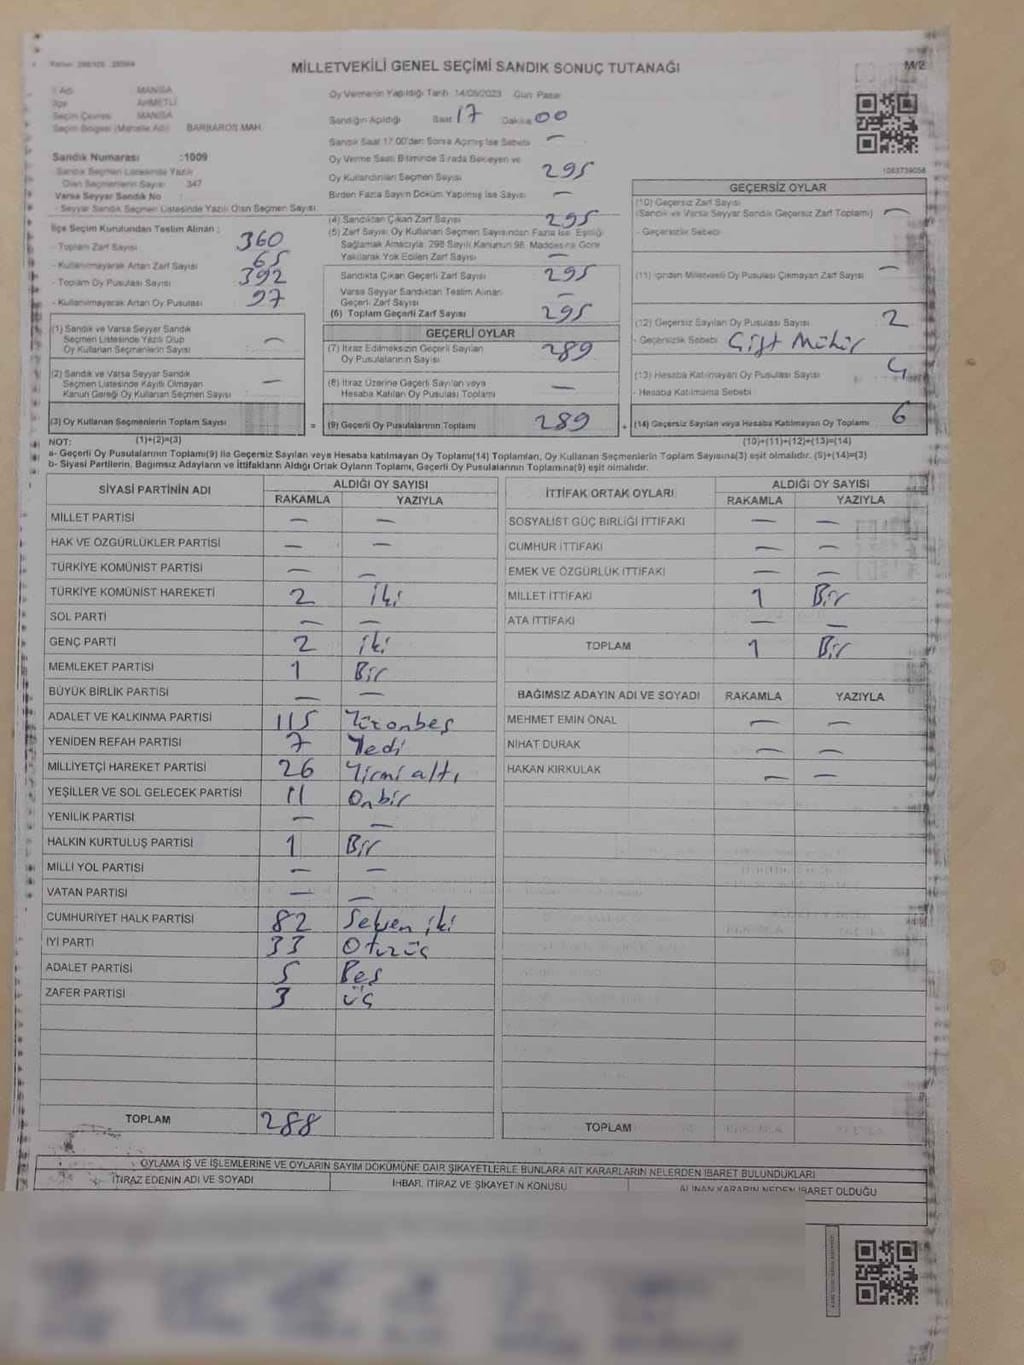 MİLLETVEKİLİ GENEL SEÇİMİ SANDIK SONUÇ TUTANAĞI
M/2
İli MANİSA
İlçe AHMETLİ
Seçim Çevresi MANİSA
Seçim Bölgesi (Mahalle Adı) BARBAROS MAH.
Sandık Numarası :1009
Sandık Seçmen Listesinde Yazılı
Olan Seçmenlerin Sayısı 347
Varsa Seyyar Sandık No
- Seyyar Sandık Seçmen Listesinde Yazılı Olan Seçmen Sayısı
Oy Vermenin Yapıldığı Tarih 14/05/2023 Gün Pazar
Sandığın Açıldığı Saat 17 Dakika 00
Sandık Saat 17.00'den Sonra Açılmış İse Sebebi —
Oy Verme Saati Bitiminde Sırada Bekleyen ve
Oy Kullandırılan Seçmen Sayısı 295
Birden Fazla Sayım Döküm Yapılmış İse Sayısı —
İlçe Seçim Kurulundan Teslim Alınan :
- Toplam Zarf Sayısı 360
- Kullanılmayarak Artan Zarf Sayısı 65
- Toplam Oy Pusulası Sayısı 392
- Kullanılmayarak Artan Oy Pusulası 97
(1) Sandık ve Varsa Seyyar Sandık
Seçmen Listesinde Yazılı Olup
Oy Kullanan Seçmenlerin Sayısı —
(2) Sandık ve Varsa Seyyar Sandık
Seçmen Listesinde Kayıtlı Olmayan
Kanun Gereği Oy Kullanan Seçmen Sayısı —
(3) Oy Kullanan Seçmenlerin Toplam Sayısı
(1)+(2)=(3)
(4) Sandıktan Çıkan Zarf Sayısı 295
(5) Zarf Sayısı Oy Kullanan Seçmen Sayısından Fazla İse, Eşitliği
Sağlamak Amacıyla, 298 Sayılı Kanunun 98. Maddesine Göre
Yakılarak Yok Edilen Zarf Sayısı —
Sandıkta Çıkan Geçerli Zarf Sayısı 295
Varsa Seyyar Sandıktan Teslim Alınan
Geçerli Zarf Sayısı —
(6) Toplam Geçerli Zarf Sayısı 295
GEÇERLİ OYLAR
(7) İtiraz Edilmeksizin Geçerli Sayılan
Oy Pusulalarının Sayısı 289
(8) İtiraz Üzerine Geçerli Sayılan veya
Hesaba Katılan Oy Pusulası Toplamı —
= (9) Geçerli Oy Pusulalarının Toplamı 289 +
GEÇERSİZ OYLAR
(10) Geçersiz Zarf Sayısı
(Sandık ve Varsa Seyyar Sandık Geçersiz Zarf Toplamı) —
- Geçersizlik Sebebi
(11) İçinden Milletvekili Oy Pusulası Çıkmayan Zarf Sayısı —
(12) Geçersiz Sayılan Oy Pusulası Sayısı 2
- Geçersizlik Sebebi Çift Mühür
(13) Hesaba Katılmayan Oy Pusulası Sayısı 4
- Hesaba Katılmama Sebebi
(14) Geçersiz Sayılan veya Hesaba Katılmayan Oy Toplamı 6
(10)+(11)+(12)+(13)=(14)
NOT:
a- Geçerli Oy Pusulalarının Toplamı(9) ile Geçersiz Sayılan veya Hesaba katılmayan Oy Toplamı(14) Toplamları, Oy Kullanan Seçmenlerin Toplam Sayısına(3) eşit olmalıdır. (9)+(14)=(3)
b- Siyasi Partilerin, Bağımsız Adayların ve İttifakların Aldığı Ortak Oyların Toplamı, Geçerli Oy Pusulalarının Toplamına(9) eşit olmalıdır.
SİYASİ PARTİNİN ADI ALDIĞI OY SAYISI
RAKAMLA YAZIYLA
MİLLET PARTİSİ — —
HAK VE ÖZGÜRLÜKLER PARTİSİ — —
TÜRKİYE KOMÜNİST PARTİSİ — —
TÜRKİYE KOMÜNİST HAREKETİ 2 iki
SOL PARTİ — —
GENÇ PARTİ 2 iki
MEMLEKET PARTİSİ 1 Bir
BÜYÜK BİRLİK PARTİSİ — —
ADALET VE KALKINMA PARTİSİ 115 Yüzonbeş
YENİDEN REFAH PARTİSİ 7 Yedi
MİLLİYETÇİ HAREKET PARTİSİ 26 Yirmi altı
YEŞİLLER VE SOL GELECEK PARTİSİ 11 Onbir
YENİLİK PARTİSİ — —
HALKIN KURTULUŞ PARTİSİ 1 Bir
MİLLİ YOL PARTİSİ — —
VATAN PARTİSİ — —
CUMHURİYET HALK PARTİSİ 82 Seksen iki
İYİ PARTİ 33 Otuzüç
ADALET PARTİSİ 5 Beş
ZAFER PARTİSİ 3 üç
TOPLAM 288
İTTİFAK ORTAK OYLARI ALDIĞI OY SAYISI
RAKAMLA YAZIYLA
SOSYALİST GÜÇ BİRLİĞİ İTTİFAKI — —
CUMHUR İTTİFAKI — —
EMEK VE ÖZGÜRLÜK İTTİFAKI — —
MİLLET İTTİFAKI 1 Bir
ATA İTTİFAKI — —
TOPLAM 1 Bir
BAĞIMSIZ ADAYIN ADI VE SOYADI RAKAMLA YAZIYLA
MEHMET EMİN ÖNAL — —
NİHAT DURAK — —
HAKAN KIRKULAK — —
TOPLAM
OYLAMA İŞ VE İŞLEMLERİNE VE OYLARIN SAYIM DÖKÜMÜNE DAİR ŞİKAYETLERLE BUNLARA AİT KARARLARIN NELERDEN İBARET BULUNDUKLARI
İTİRAZ EDENİN ADI VE SOYADI İHBAR, İTİRAZ VE ŞİKAYETİN KONUSU ALINAN KARARIN NEDEN İBARET OLDUĞU